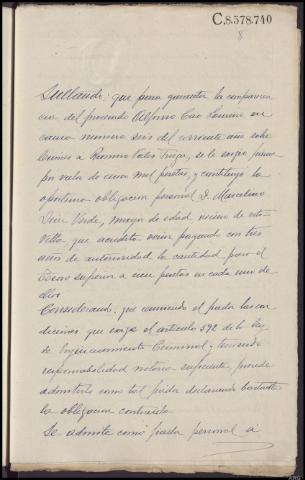 C.8.578.740
8
Resultando: que para garantir la comparecen
cia del procesado Alfonso Cao Lorenzo en
causa número seis del corriente año sobre
a Ramona, se le exigió fianza
por valor de cinco mil pesetas, y constituyó la
oportuna obligación personal D. Marcelino
Verde, mayor de edad vecino de esta
Villa, que acredita venir pagando con tres
años de anterioridad la cantidad para el
Tesoro superior a cien pesetas en cada uno de
ellos
Considerando: que reuniendo el fiador las con
diciones que exige el artículo 592 de la Ley
de Enjuiciamiento Criminal, y teniendo
responsabilidad notoria suficiente, procede
admitirlo como tal fiador declarando bastante
la obligación contraida.
Se admite como fiador personal a